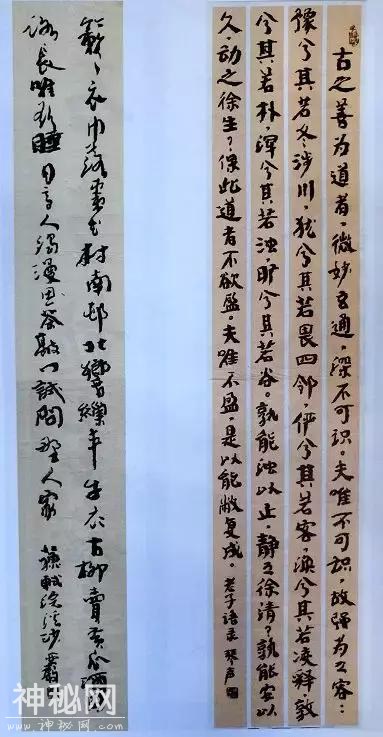 古之善为道者，微妙玄通，深不可识。夫唯不可识，故强为之容：
豫兮其若冬涉川，犹兮其若畏四邻，俨兮其若客，涣兮其若凌释，敦
兮其若朴，浑兮其若浊，旷兮其若谷。孰能浊以止，静之徐清？孰能安以
久，动之徐生？保此道者不欲盈。夫唯不盈，是以能敝复成。老子语录 琴声
簌々衣巾落枣花村南邨北響繰車牛衣古柳賣黄瓜酒困
路長唯欲睡日高人渴漫思茶敲门試問野人家 蘇軾浣溪沙
神秘网